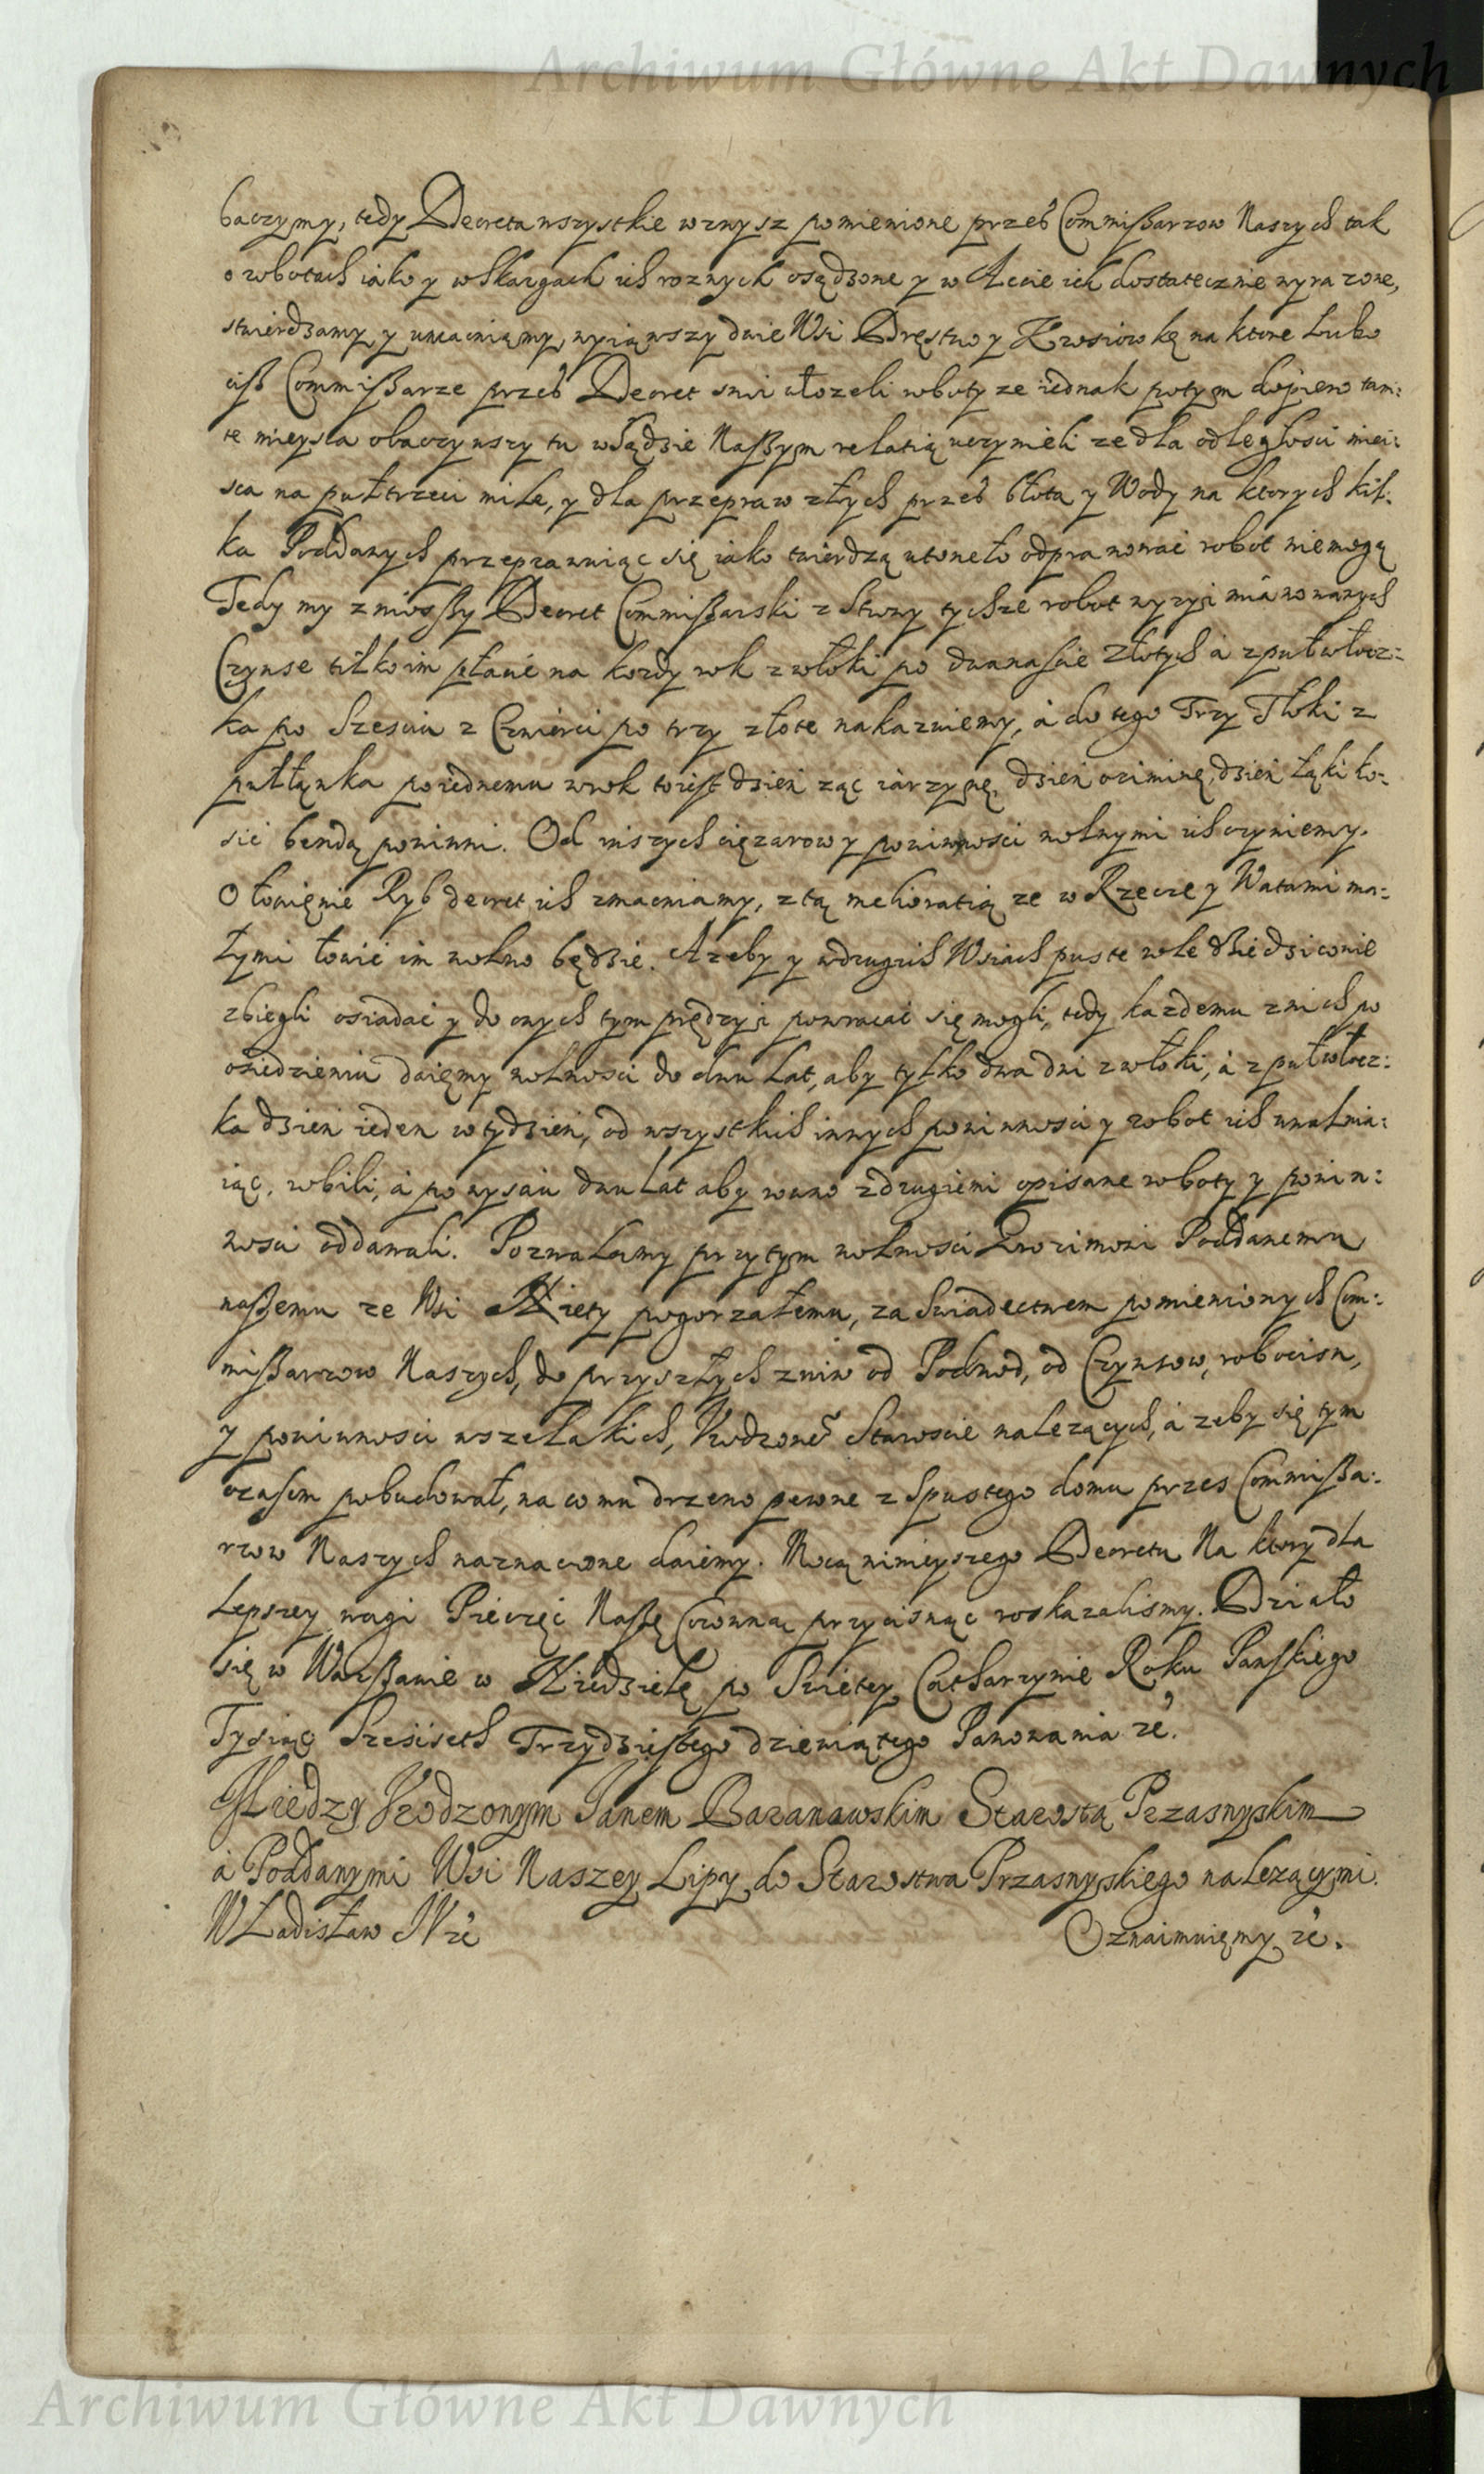 Archiwum Główne Akt Dawnych
baczymy, tedy Decreta wszystkie wznysz pomienione przeß Commißarzow Naszych tak
o robotach iako y wskargach ich roznych osądzone y w Akcie ich dostatecznie wyrazone,
stwierdzamy y umacniamy, wyiąwszy dwie Wsi Dręstwo y Kwsiowkę na ktore lubo
ciß Commißarze przeß Decret swii ułozeli roboty ze iednak potym dopiero tam:
te mieysca obaczywszy tu w Sądzie Naßym relatią uczynieli ze dla odległosci miei:
sca na pułtrzeci mile, y dla przepraw złych przeß błota y Wody na ktorych kil:
ka Poddanych przeprawuiąc się iako twierdzą utoneło odprawować robot niemogą
Tedy my zniosßy Decret Commißarski z Strony tychze robot wyzyi mianowanych
Czynse tilko im płacić na kozdy rok z włoki po dwanascie Złotych a z puł włocz:
ka po Szesciu z Czwierci po trzy złote nakazuiemy, a do tego Trzy Tłoki z
pułłanka poiednemu wrok toiest dzień ząc iarzynę, dzień oziminę, dzień łąki ko:
sić bendą powinni. Od inszych cięzarow y powinnosci wolnymi ich czyniemy.
O łowięnie Ryb decret ich zmacniamy, z tą melioratią ze w Rzecze y Watami ma:
łymi łowić im wolno będzie. Azeby y w drugich Wsiach puste role dziedzicowie
zbiegli osiadać y do onych tym prędzyi powracać się mogli, tedy kazdemu z nich po
osiedzieniu daięmy wolnosci do dwu lat, aby tylko dwa dni z włoki, a z puł włocz:
ka dzien ieden w tydzień, od wszystkich innych powinnosci y robot ich uwalnia:
iąc, robili, a po wysciu dwu Lat aby rowno z drugiemi opisane roboty y powin:
nosci oddawali. Pozwalamy przytym wolnosci Poddanemu
naßemu ze Wsi pogorzałemu, za Swiadectwem pomienionych Com:
mißarzow Naszych, do przyszłych zniw od Podwod, od Czynsow, robocizn,
y powinnosci wszelakich, Urodzoneo Staroscie nalezących, a zeby się tym
czasem pobudował, na co mu drzewo pewne z Spustego domu przes Commißa:
rzow Naszych naznaczone daiemy. Mocą ninieyszego Decretu Na ktory dla
Lepszey wagi Pieczęć Naßę Coronną przycisnąc roskazalismy. Działo
się w Warßawie w Niedzielę po Swietey Catharzynie Roku Panskiego
Tysiąc Szescseth Trzydziestego dziewiątego Panowania ze.
Miedzy Urodzonym Janem Baranowskim Starostą Przasnyskim
a Poddanymi Wsi Naszey Lipy do Starostwa Przasnyskiego nalezącymi.
Władisław IV ze Oznaimuięmy ze.
Archiwum Główne Akt Dawnych